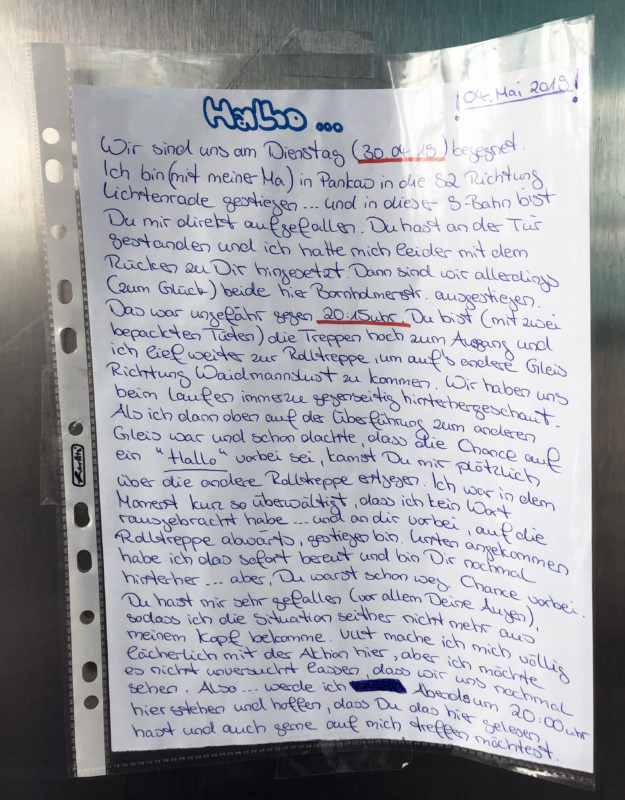 ! 04. Mai 2019 !
Hallo ...
Wir sind uns am Dienstag (30.04.19) begegnet.
Ich bin (mit meiner Ma) in Pankow in die S2 Richtung
Lichtenrade gestiegen ... und in dieser S-Bahn bist
Du mir direkt aufgefallen. Du hast an der Tür
gestanden und ich hatte mich leider mit dem
Rücken zu Dir hingesetzt. Dann sind wir allerdings
(zum Glück) beide hier Bornholmerstr. ausgestiegen.
Das war ungefähr gegen 20:15uhr. Du bist (mit zwei
bepackten Tüten) die Treppen hoch zum Ausgang und
ich lief weiter zur Rolltreppe, um auf's andere Gleis
Richtung Waidmannslust zu kommen. Wir haben uns
beim laufen immerzu gegenseitig hinterhergeschaut.
Als ich dann oben auf der Überführung zum anderen
Gleis war und schon dachte, dass die Chance auf
ein "Hallo" vorbei sei, kamst Du mir plötzlich
über die andere Rolltreppe entgegen. Ich war in dem
Moment kurz so überwältigt, dass ich kein Wort
rausgebracht habe ... und an dir vorbei, auf die
Rolltreppe abwärts, gestiegen bin. Unten angekommen
habe ich das sofort bereut und bin Dir nochmal
hinterher ... aber, Du warst schon weg. Chance vorbei.
Du hast mir sehr gefallen (vor allem Deine Augen),
sodass ich die Situation seither nicht mehr aus
meinem Kopf bekomme. Vllt mache ich mich völlig
lächerlich mit der Aktion hier, aber ich möchte
es nicht unversucht lassen, dass wir uns nochmal
sehen. Also ... werde ich Abends um 20:00uhr
hier stehen und hoffen, dass Du das hier gelesen
hast und auch gerne auf mich treffen möchtest.
Herlitz